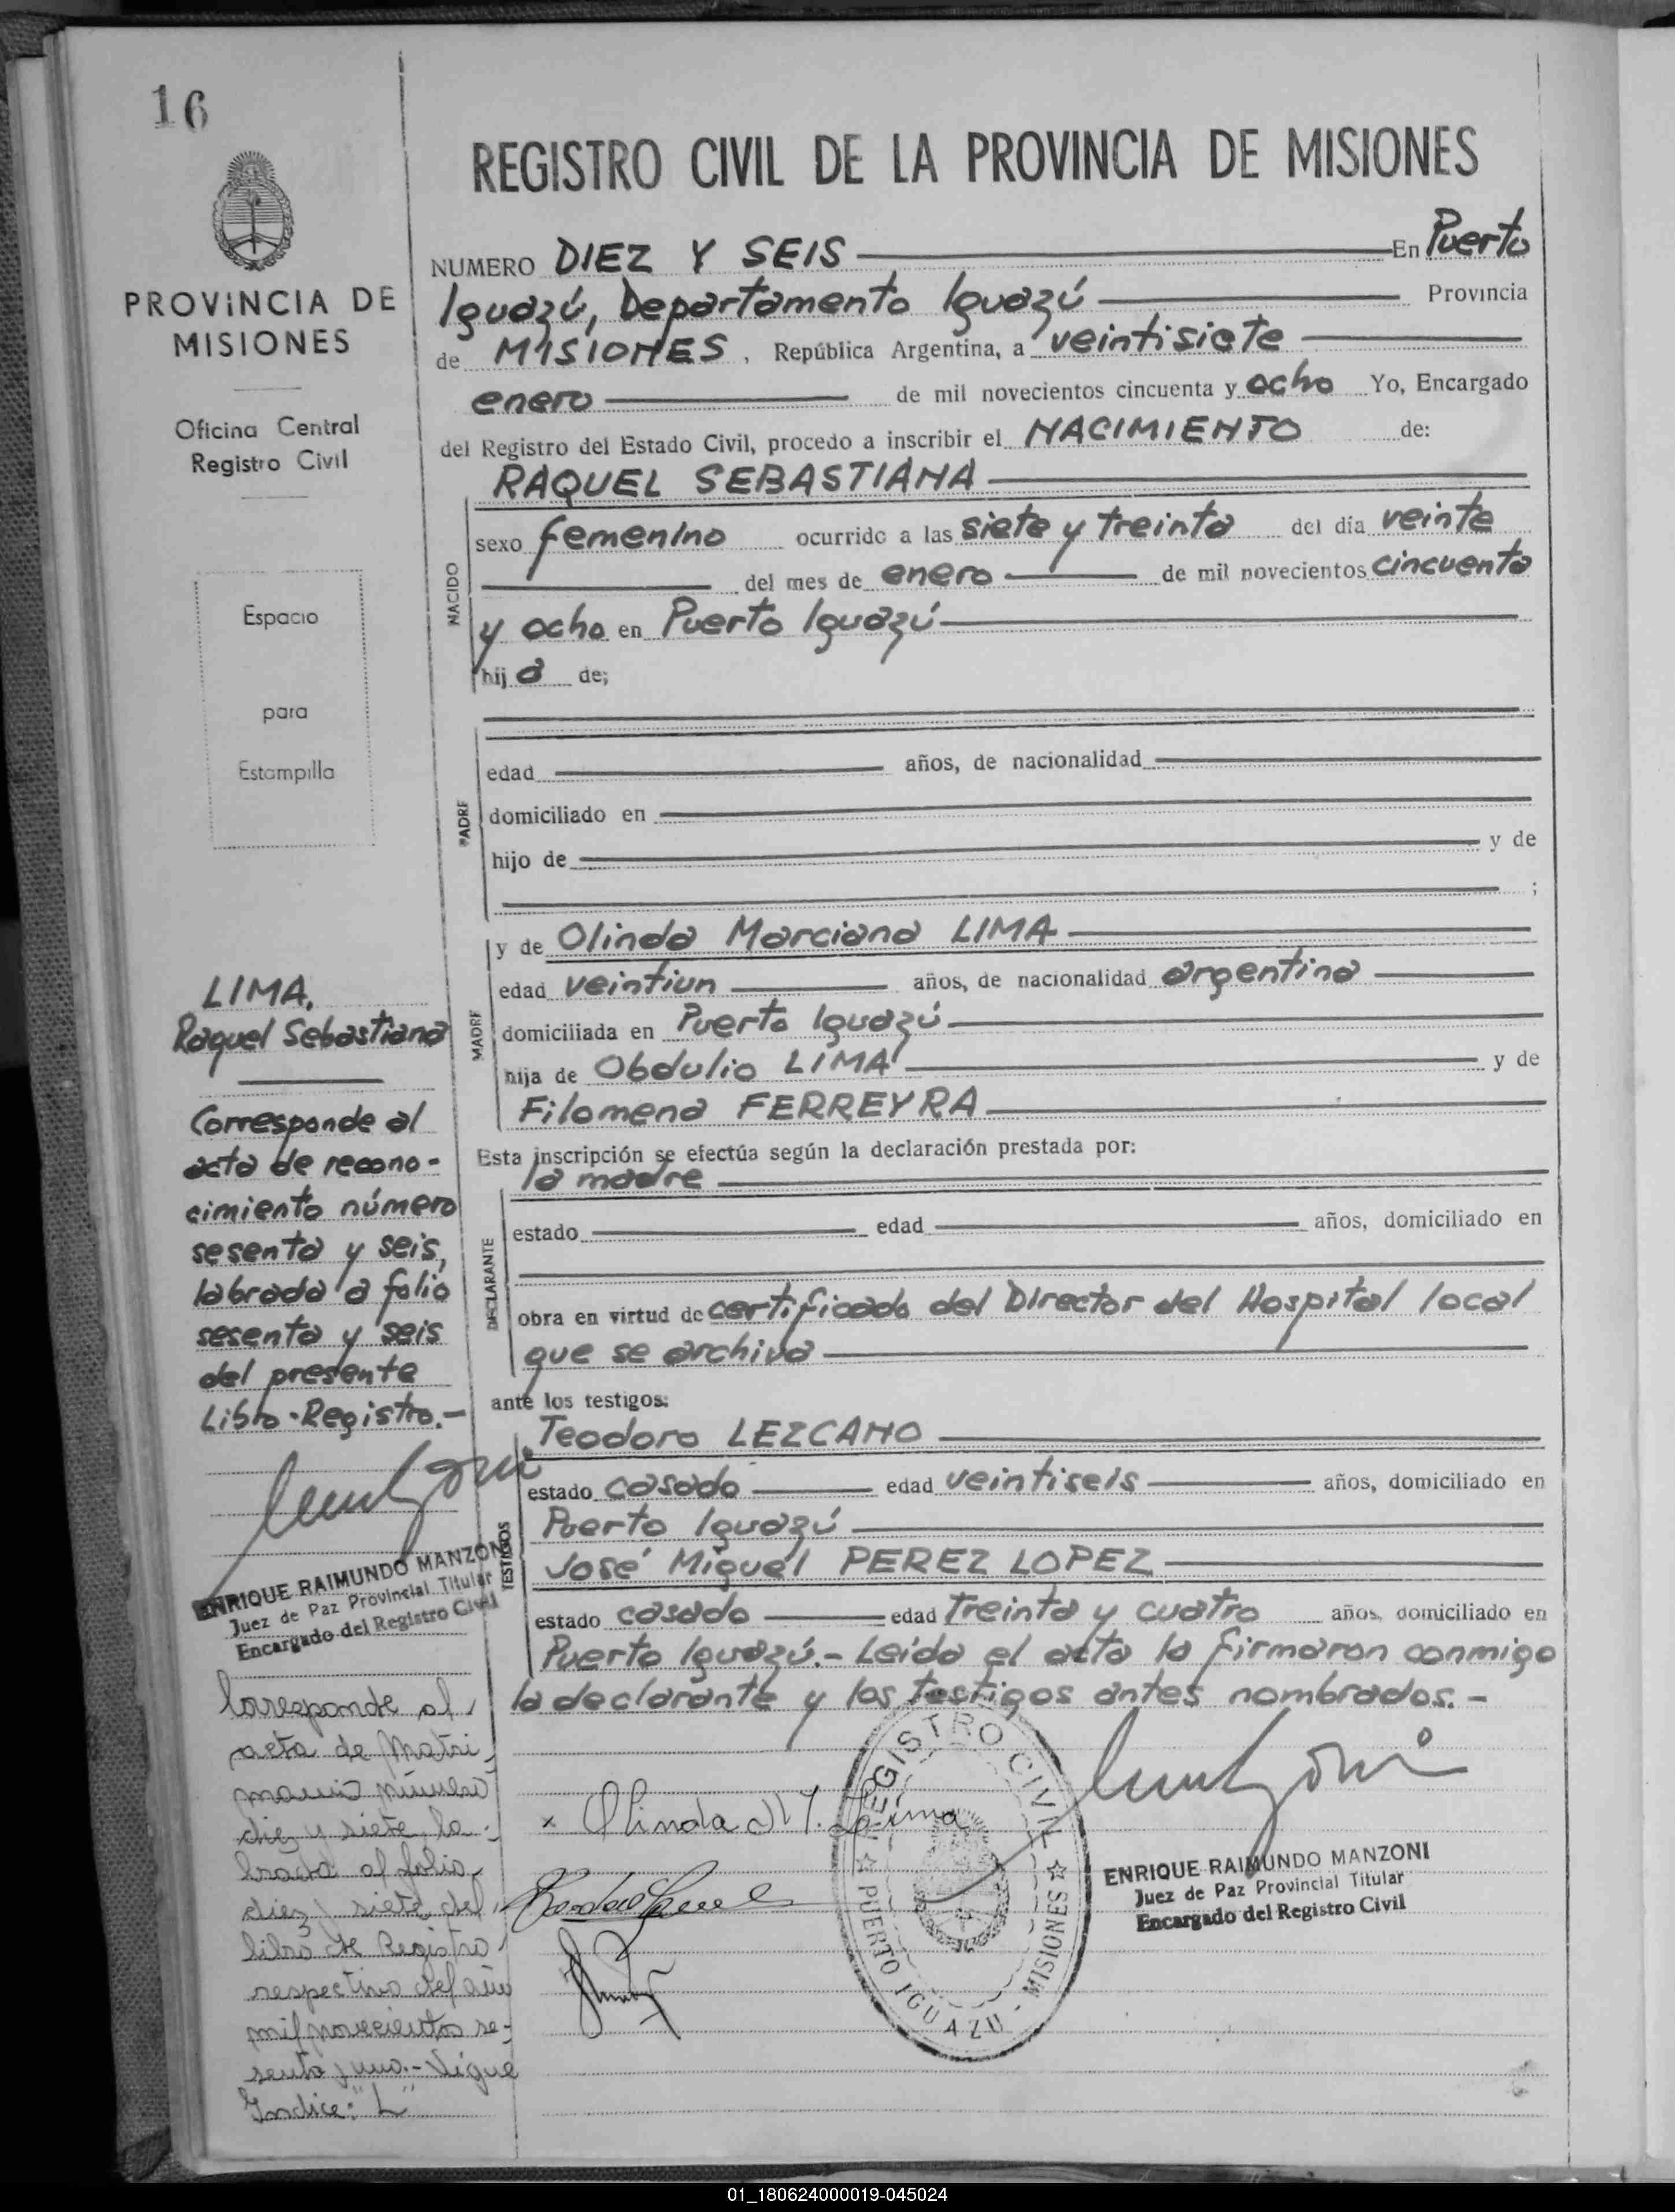 16
PROVINCIA DE
MISIONES
Oficina Central
Registro Civil
Espacio
para
Estampilla
REGISTRO CIVIL DE LA PROVINCIA DE MISIONES
NUMERO DIEZ Y SEIS En Puerto
Iguazú, Departamento Iguazú Provincia
de MISIONES, República Argentina, a veintisiete
enero de mil novecientos cincuenta y ocho Yo, Encargado
del Registro del Estado Civil, procedo a inscribir el NACIMIENTO de:
NACIDO
RAQUEL SEBASTIANA
sexo femenino ocurrido a las siete y treinta del día veinte
del mes de enero de mil novecientos cincuenta
y ocho en Puerto Iguazú
hija de;
PADRE
edad años, de nacionalidad
domiciliado en
hijo de y de
;
MADRE
y de Olinda Marciana LIMA
edad veintiun años, de nacionalidad argentina
domiciliada en Puerto Iguazú
hija de Obdulio LIMA y de
Filomena FERREYRA
Esta inscripción se efectúa según la declaración prestada por:
DECLARANTE
la madre
estado edad años, domiciliado en
obra en virtud de certificado del Director del Hospital local
que se archiva
ante los testigos:
TESTIGOS
Teodoro LEZCANO
estado casado edad veintiseis años, domiciliado en
Puerto Iguazú
José Miguel PEREZ LOPEZ
estado casado edad treinta y cuatro años, domiciliado en
Puerto Iguazú.- Leída el acta la firmaron conmigo
la declarante y los testigos antes nombrados.-
x Olinda M. Lima
REGISTRO CIVIL
PUERTO IGUAZU - MISIONES
ENRIQUE RAIMUNDO MANZONI
Juez de Paz Provincial Titular
Encargado del Registro Civil
LIMA,
Raquel Sebastiana
Corresponde al
acta de recono-
cimiento número
sesenta y seis,
labrada a folio
sesenta y seis
del presente
Libro-Registro.-
ENRIQUE RAIMUNDO MANZONI
Juez de Paz Provincial Titular
Encargado del Registro Civil
Corresponde al
acta de Matri-
monio número
diez y siete, la-
brada al folio
diez y siete del
libro de Registro
respectivo del año
mil novecientos se-
senta y uno.- Sigue
Indice: "L"
01_180624000019-045024